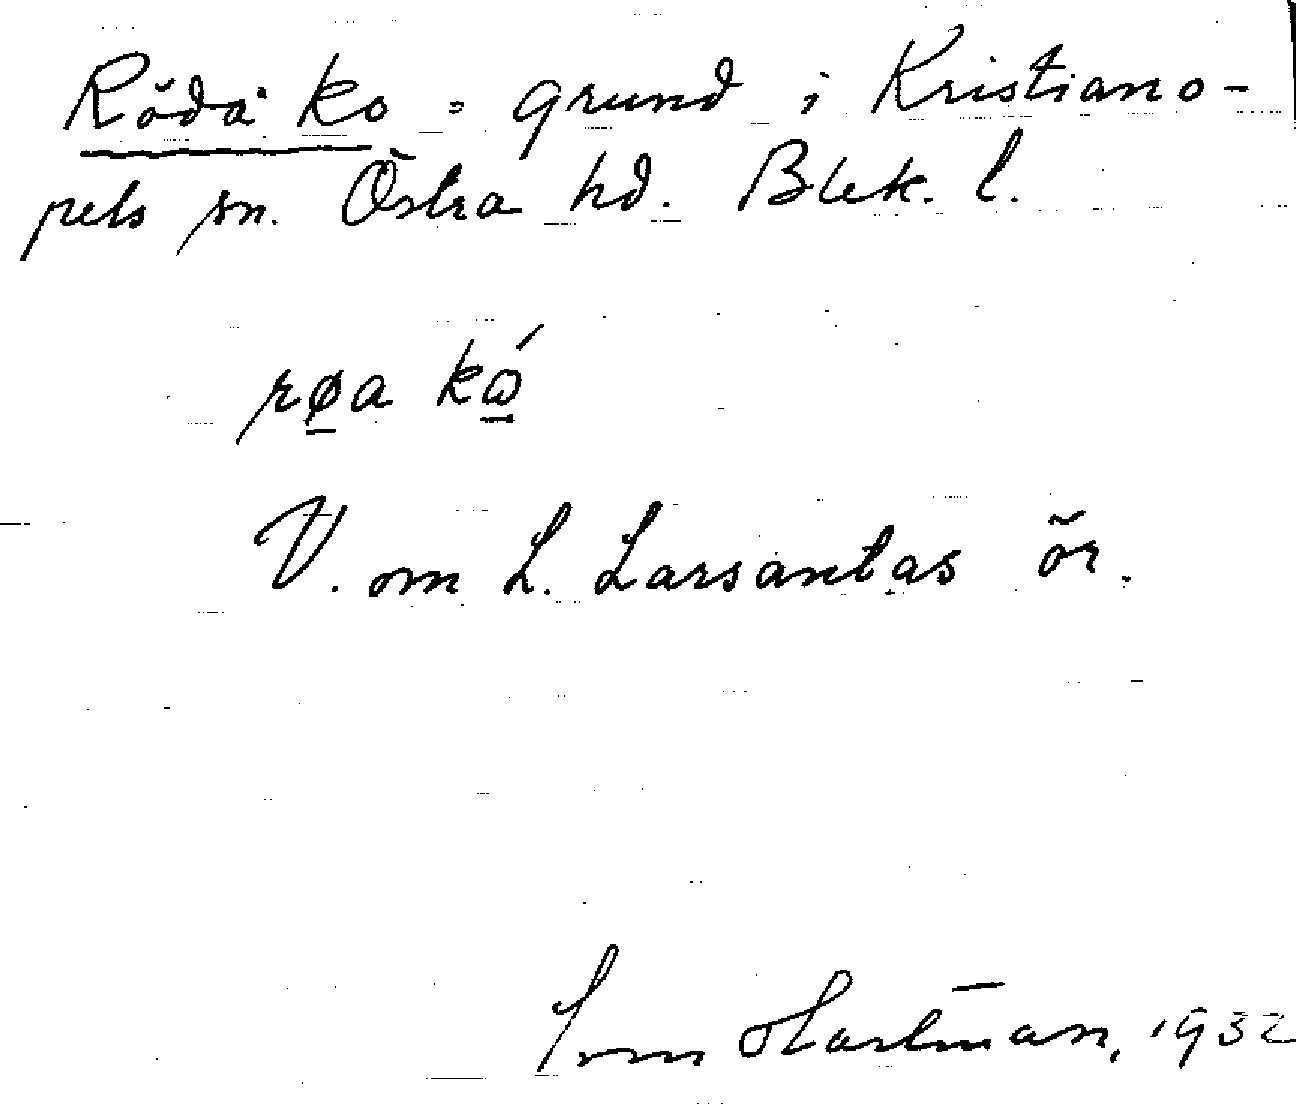 Röda ko = grund i Kristiano-
pels sn. Östra hd. Blek. l.
røa kώ
V. om L. Larsantas ör.
Hartman, 1932